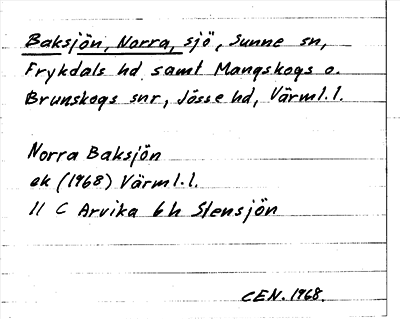 Baksjön, Norra, sjö, Sunne sn,
Frykdals hd samt Mangskogs o.
Brunskogs snr, Jösse hd, Värml. l.
Norra Baksjön
ek (1968) Värml. l.
11 C Arvika 6 h Stensjön
CEN. 1968.